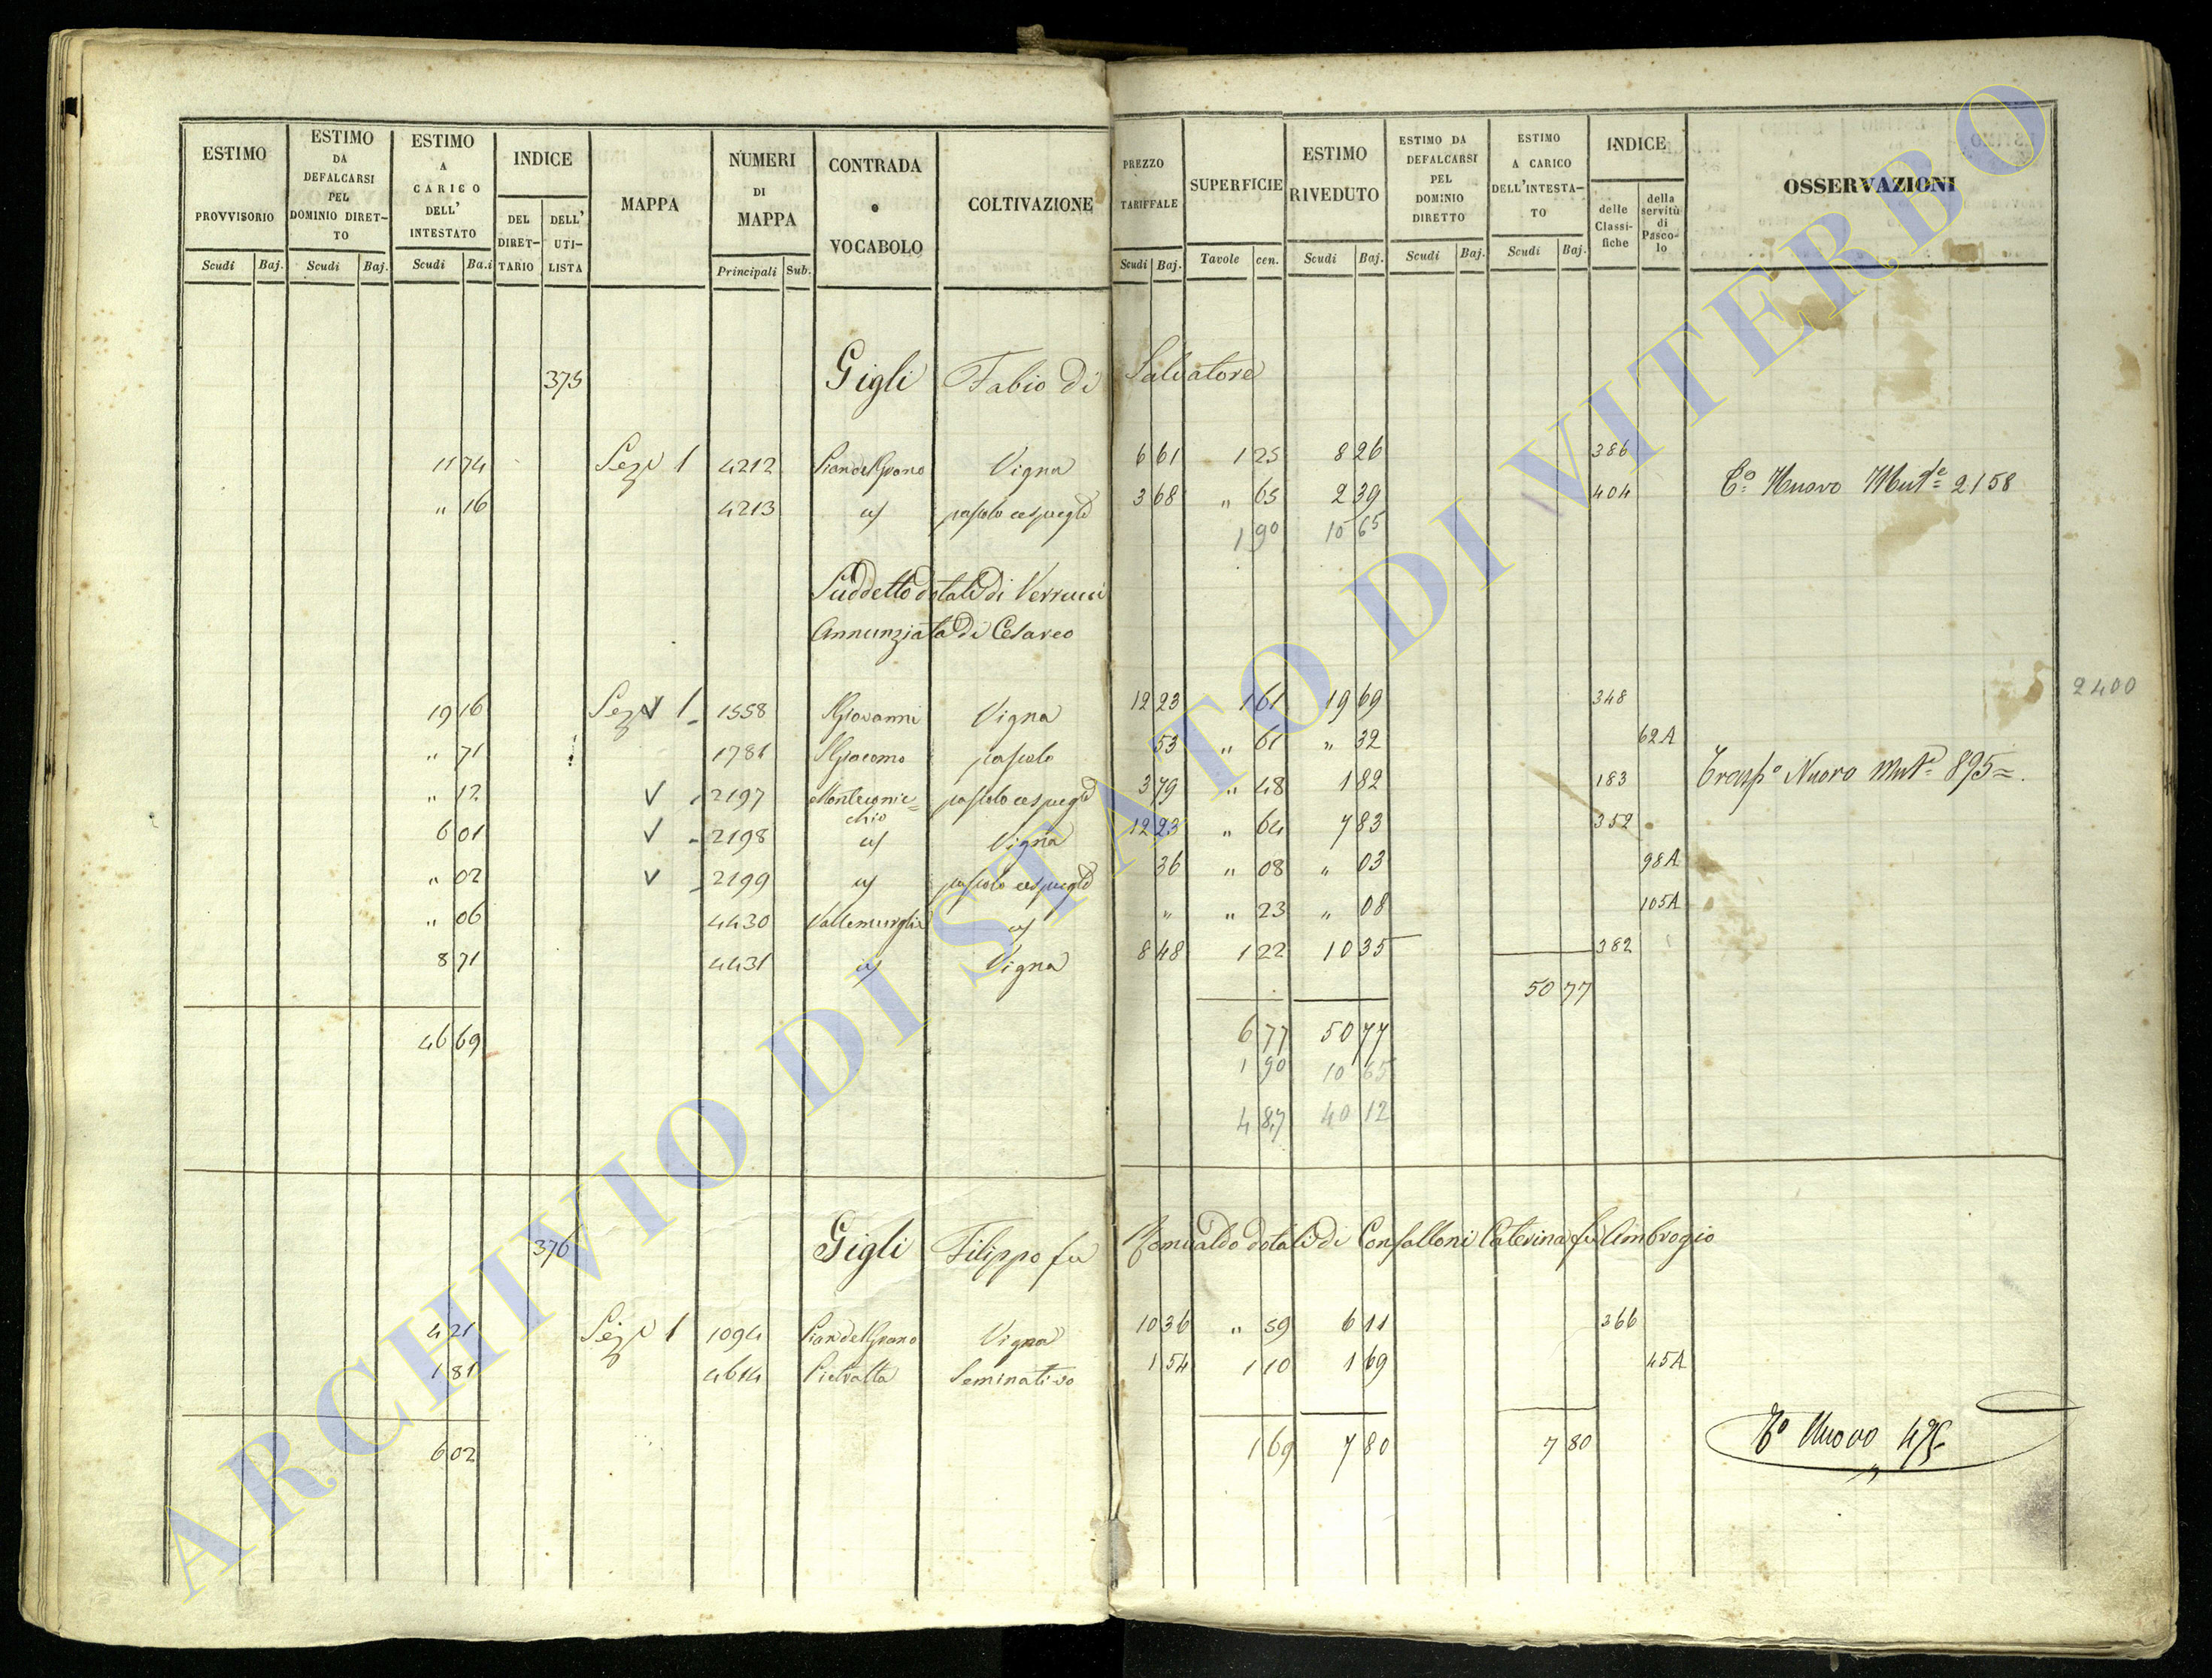 ESTIMO PROVVISORIO | ESTIMO DA DEFALCARSI PEL DOMINIO DIRETTO | ESTIMO A CARICO DELL' INTESTATO | INDICE | MAPPA | NUMERI DI MAPPA | CONTRADA o VOCABOLO | COLTIVAZIONE | PREZZO TARIFFALE | SUPERFICIE | ESTIMO RIVEDUTO | ESTIMO DA DEFALCARSI PEL DOMINIO DIRETTO | ESTIMO A CARICO DELL'INTESTATO | INDICE | OSSERVAZIONI
DEL DIRETTARIO | DELL' UTILISTA | delle Classifiche | della servitù di Pascolo
Scudi | Baj. | Scudi | Baj. | Scudi | Ba.i | Principali | Sub. | Scudi | Baj. | Tavole | cen. | Scudi | Baj. | Scudi | Baj. | Scudi | Baj.
375 Gigli Fabio di Salvatore
11 74 Sez 1 4212 Piandelgrano Vigna 6 61 1 25 8 26 386
" 16 4213 pascolo cespugto 3 68 " 65 2 39 404 To Nuovo Mute 2158
1 90 10 65
Suddetto dotali di Verrucci
Annunziata di Cesareo
19 16 Sez 1 1558 SGiovanni Vigna 12 23 1 61 19 69 348 2400
" 71 1781 SGiacomo pascolo 53 " 61 " 32 62A
" 12 2197 Monteconic=chio pascolo cespugto 3 79 " 48 1 82 183 Traspo Nuovo Mute 895=
6 01 2198 Vigna 12 23 " 64 7 83 352
" 02 2199 pascolo cespugto 36 " 08 " 03 98A
" 06 4430 " " 23 " 08 105A
8 71 4431 Vigna 8 48 1 22 10 35 382
50 77
46 69 6 77 50 77
1 90 10 65
4 87 40 12
376 Gigli Filippo fu Romualdo dotali di Confalloni Caterina fu Ambrogio
4 21 Sez 1 1094 Piandelgrano Vigna 10 36 " 59 6 11 366
1 81 4614 Pietralta Seminativo 1 54 1 10 1 69 45A
6 02 1 69 7 80 7 80 To Nuovo 475
ARCHIVIO DI STATO DI VITERBO